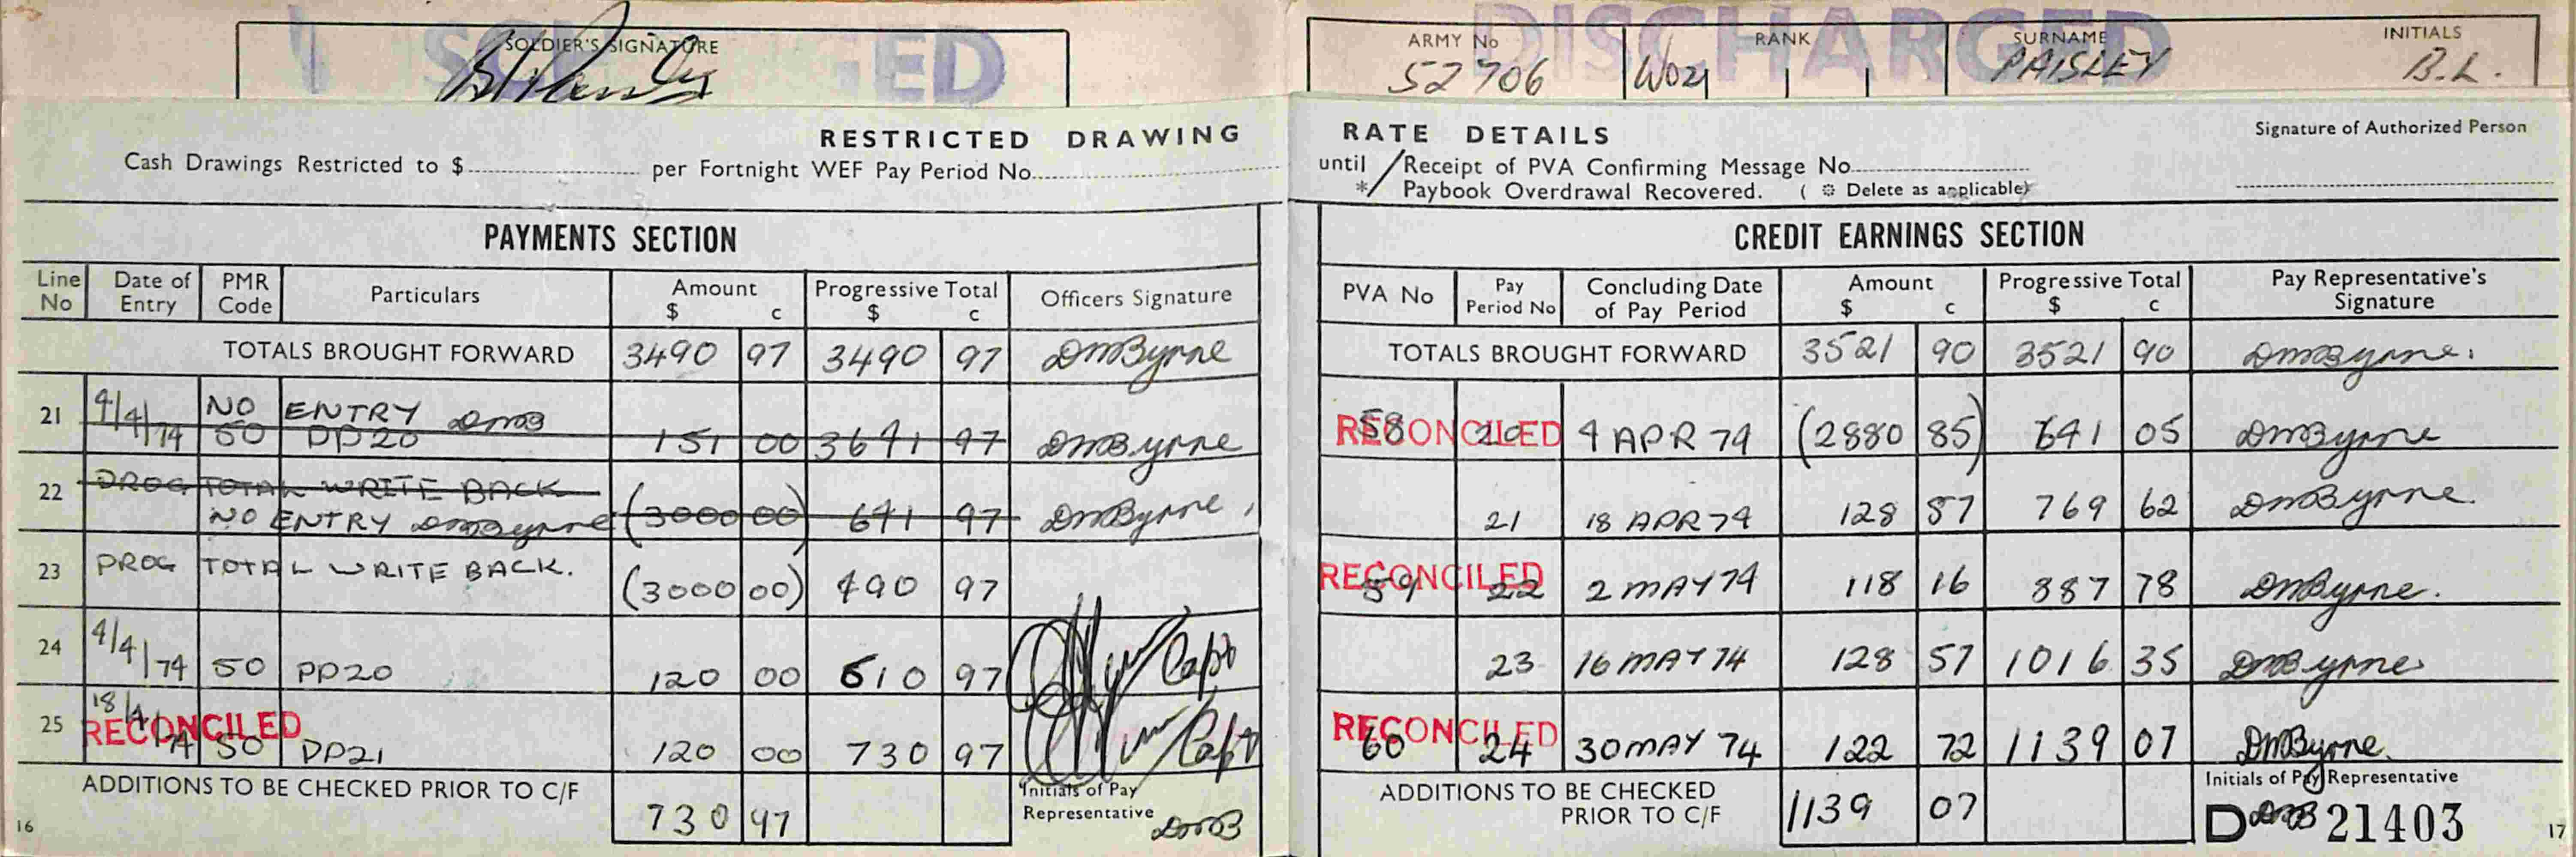 SOLDIER'S SIGNATURE
DISCHARGED
ARMY No RANK SURNAME INITIALS
52706 WO2 PAISLEY B.L.
RESTRICTED DRAWING RATE DETAILS
Cash Drawings Restricted to $ per Fortnight WEF Pay Period No. until / Receipt of PVA Confirming Message No.
* / Paybook Overdrawal Recovered. ( * Delete as applicable)
Signature of Authorized Person
PAYMENTS SECTION
Line No Date of Entry PMR Code Particulars Amount $ c Progressive Total $ c Officers Signature
TOTALS BROUGHT FORWARD 3490 97 3490 97 DMByrne
21 4/4/74 NO ENTRY DMB
50 PP20 151 00 3641 97 DMByrne
22 PROG TOTAL WRITE BACK
NO ENTRY DMByrne (3000 00) 641 97 DMByrne
23 PROG TOTAL WRITE BACK. (3000 00) 490 97
24 4/4/74 50 PP20 120 00 610 97 Capt
25 18/4/74 50 PP21 120 00 730 97 Capt
RECONCILED
ADDITIONS TO BE CHECKED PRIOR TO C/F 730 97 Initials of Pay Representative DMB
16
CREDIT EARNINGS SECTION
PVA No Pay Period No Concluding Date of Pay Period Amount $ c Progressive Total $ c Pay Representative's Signature
TOTALS BROUGHT FORWARD 3521 90 3521 90 DMByrne.
RECONCILED
58 20 4 APR 74 (2880 85) 641 05 DMByrne
21 18 APR 74 128 57 769 62 DMByrne.
RECONCILED
59 22 2 MAY 74 118 16 887 78 DMByrne.
23 16 MAY 74 128 57 1016 35 DMByrne
RECONCILED
60 24 30 MAY 74 122 72 1139 07 DMByrne.
ADDITIONS TO BE CHECKED PRIOR TO C/F 1139 07 Initials of Pay Representative
DMB
D 21403
17